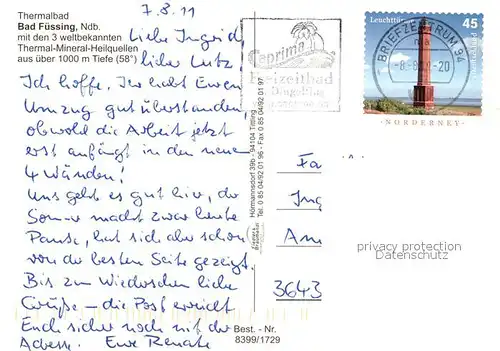 Thermalbad
Bad Füssing, Ndb.
mit den 3 weltbekannten
Thermal-Mineral-Heilquellen
aus über 1000 m Tiefe (58°)
7.8.11
Liebe Ingrid,
lieber Lutz!
Ich hoffe, Ihr habt Euren
Umzug gut überstanden,
obwohl die Arbeit jetzt
erst anfängt in den neuen
4 Wänden!
Uns geht es gut hier, die
Sonne macht zwar heute
Pause, hat sich aber schon
von der besten Seite gezeigt.
Bis zum Wiedersehen liebe
Grüße – die Post erreicht
Euch sicher noch mit der
Adresse. Eure Renate
caprima
Freizeitbad
Dingolfing
Hörmannsdorf 39b · 94104 Tittling
Tel. 0 85 04/92 01 96 · Fax 0 85 04/92 01 97
Best. - Nr.
8399/1729
Leuchttürme
45
BRIEFZENTRUM 94
-8.-8.11-20
NORDERNEY
Fa
Ing
Am
3643
privacy protection
Datenschutz